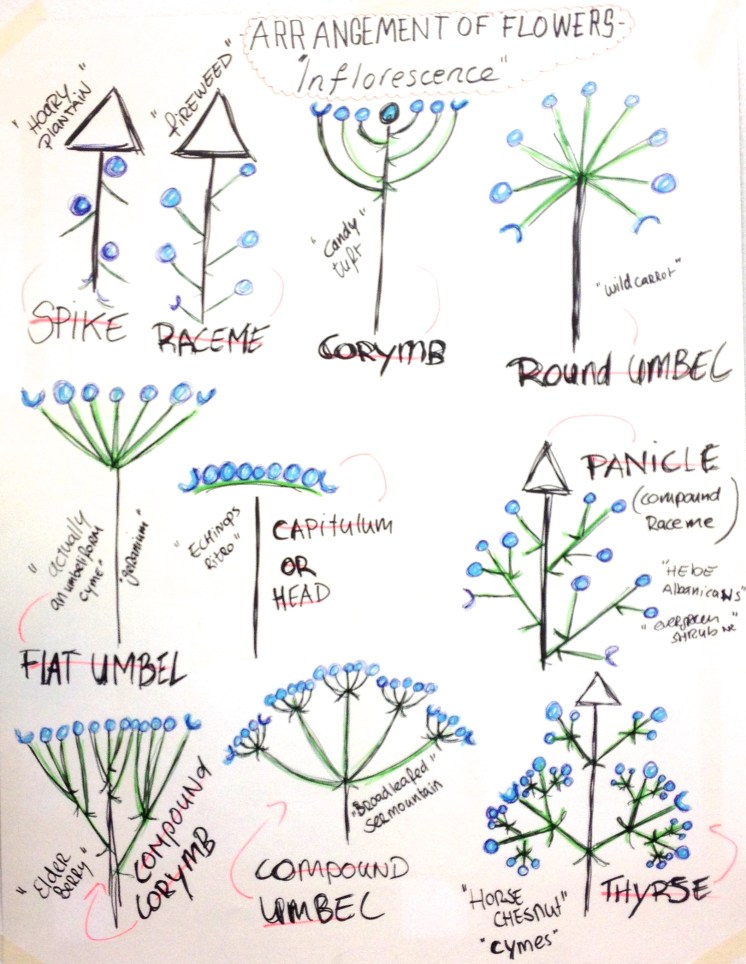 -ARRANGEMENT OF FLOWERS-
"Inflorescence"
"HOARY
PLANTAIN"
"FIREWEED"
"Candy"
tuft
"wild carrot"
SPIKE
RACEME
CORYMB
Round UMBEL
"actually
an umbelliform
cyme"
"geranium"
FLAT UMBEL
"ECHINOPS
RITRO"
CAPITULUM
OR
HEAD
PANICLE
(compound
Raceme)
"HEBE
Albanicans"
"evergreen
SHRUB
"Elder
Berry"
COMPOUND
CORYMB
"Broadleafed"
Sermountain
COMPOUND
UMBEL
"HORSE
CHESNUT"
"cymes"
THYRSE